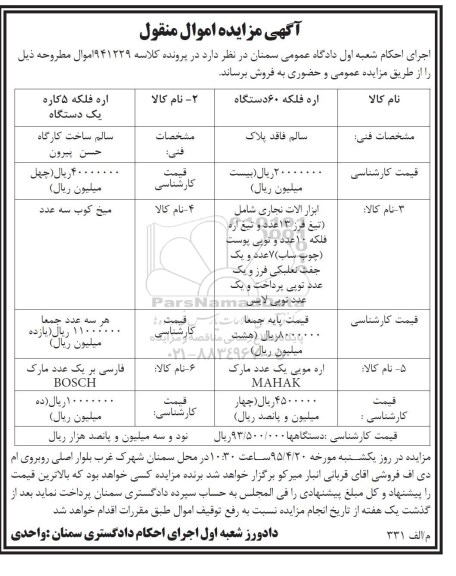 آگهی مزایده اموال منقول
اجرای احکام شعبه اول دادگاه عمومی سمنان در نظر دارد در پرونده کلاسه ۹۴۱۲۲۹اموال مطروحه ذیل
را از طریق مزایده عمومی و حضوری به فروش برساند.
نام کالا
اره فلکه ۶۰دستگاه
۲- نام کالا
اره فلکه ۵کاره
یک دستگاه
مشخصات فنی:
سالم فاقد پلاک
مشخصات
فنی:
سالم ساخت کارگاه
حسن پیرون
قیمت کارشناسی
۲۰۰۰۰۰۰۰ریال(بیست
میلیون ریال)
قیمت
کارشناسی
۴۰۰۰۰۰۰۰ریال(چهل
میلیون ریال)
۳-نام کالا:
ابزار الات نجاری شامل
(تیغ فرز ۱۳عدد و تیغ اره
فلکه ۱۰عدد و توپی پوست
(چوب ساب)۷عدد و یک
جفت نعلبکی فرز و یک
عدد توپی پرداخت و یک
عدد توپی لایس
۴-نام کالا
میخ کوب سه عدد
قیمت کارشناسی
قیمت پایه جمعا
۸۰۰۰۰۰۰ریال (هشت
میلیون ریال)
قیمت
کارشناسی
هر سه عدد جمعا
۱۱۰۰۰۰۰۰ ریال(یازده
میلیون ریال)
۵- نام کالا:
اره مویی یک عدد مارک
MAHAK
۶-نام کالا:
فارسی بر یک عدد مارک
BOSCH
قیمت
کارشناسی :
۴۵۰۰۰۰۰ریال(چهار
میلیون و پانصد ریال)
قیمت
کارشناسی:
۱۰۰۰۰۰۰۰ریال(ده
میلیون ریال)
قیمت کارشناسی :دستگاهها۹۳/۵۰۰/۰۰۰ریال
نود و سه میلیون و پانصد هزار ریال
مزایده در روز یکشـنبه مورخه ۹۵/۴/۲۰سـاعت ۱۰:۳۰در محل سمنان شهرک غرب بلوار اصلی روبروی ام
دی اف فروشی اقای قربانی انبار میرکو برگزار خواهد شد برنده مزایده کسی خواهد بود که بالاترین قیمت
را پیشنهاد و کل مبلغ پیشنهادی را فی المجلس به حساب سپرده دادگستری سمنان پرداخت نماید بعد از
گذشت یک هفته از تاریخ انجام مزایده نسبت به رفع توقیف اموال طبق مقررات اقدام خواهد شد
دادورز شعبه اول اجرای احکام دادگستری سمنان :واحدی
م/الف ۳۳۱